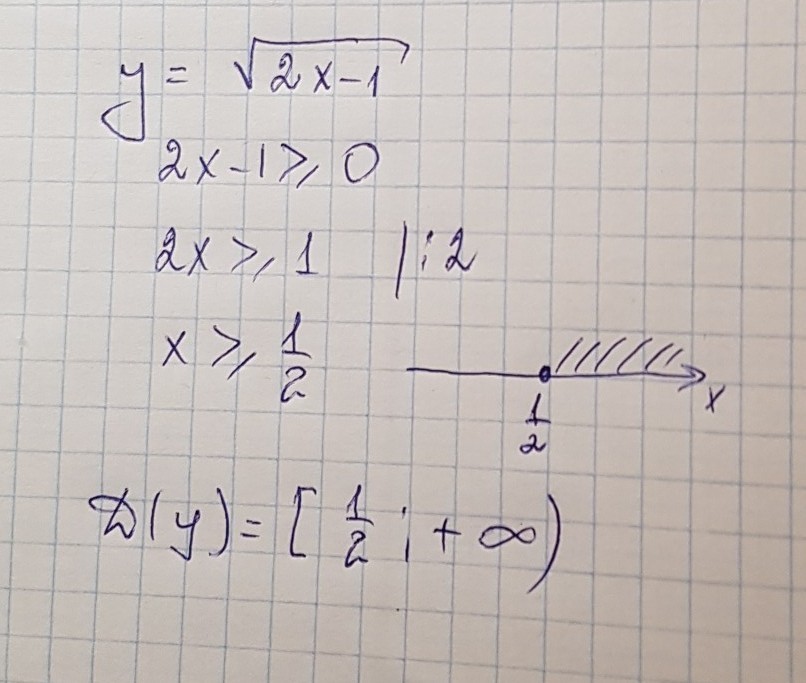 y = √(2x-1)
2x-1 ⩾ 0
2x ⩾ 1 | : 2
x ⩾ 1/2
1/2 x
D(y) = [1/2; +∞)